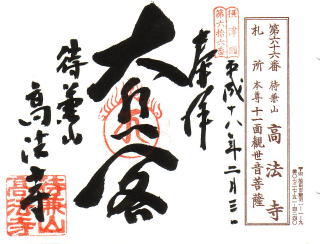 第六十六番 待兼山
高法寺
札所 本尊十一面観世音菩薩
摂津国
第六拾六番
奉拝
平成十八年二月三日
大悲閣
待兼山
高法寺
待兼山
高法寺